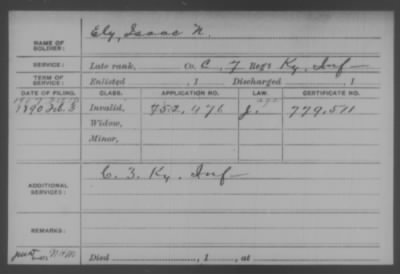 NAME OF SOLDIER: Ely, Isaac N.
SERVICE: Late rank, Co. C, 7 Reg't Ky. Inf
TERM OF SERVICE: Enlisted , 1 Discharged , 1
DATE OF FILING. CLASS. APPLICATION NO. LAW. CERTIFICATE NO.
1890 Feb. 3 Invalid, 752,976 J. 779,511
Widow,
Minor,
ADDITIONAL SERVICES: C. 3. Ky. Inf
REMARKS:
Died , 1 , at